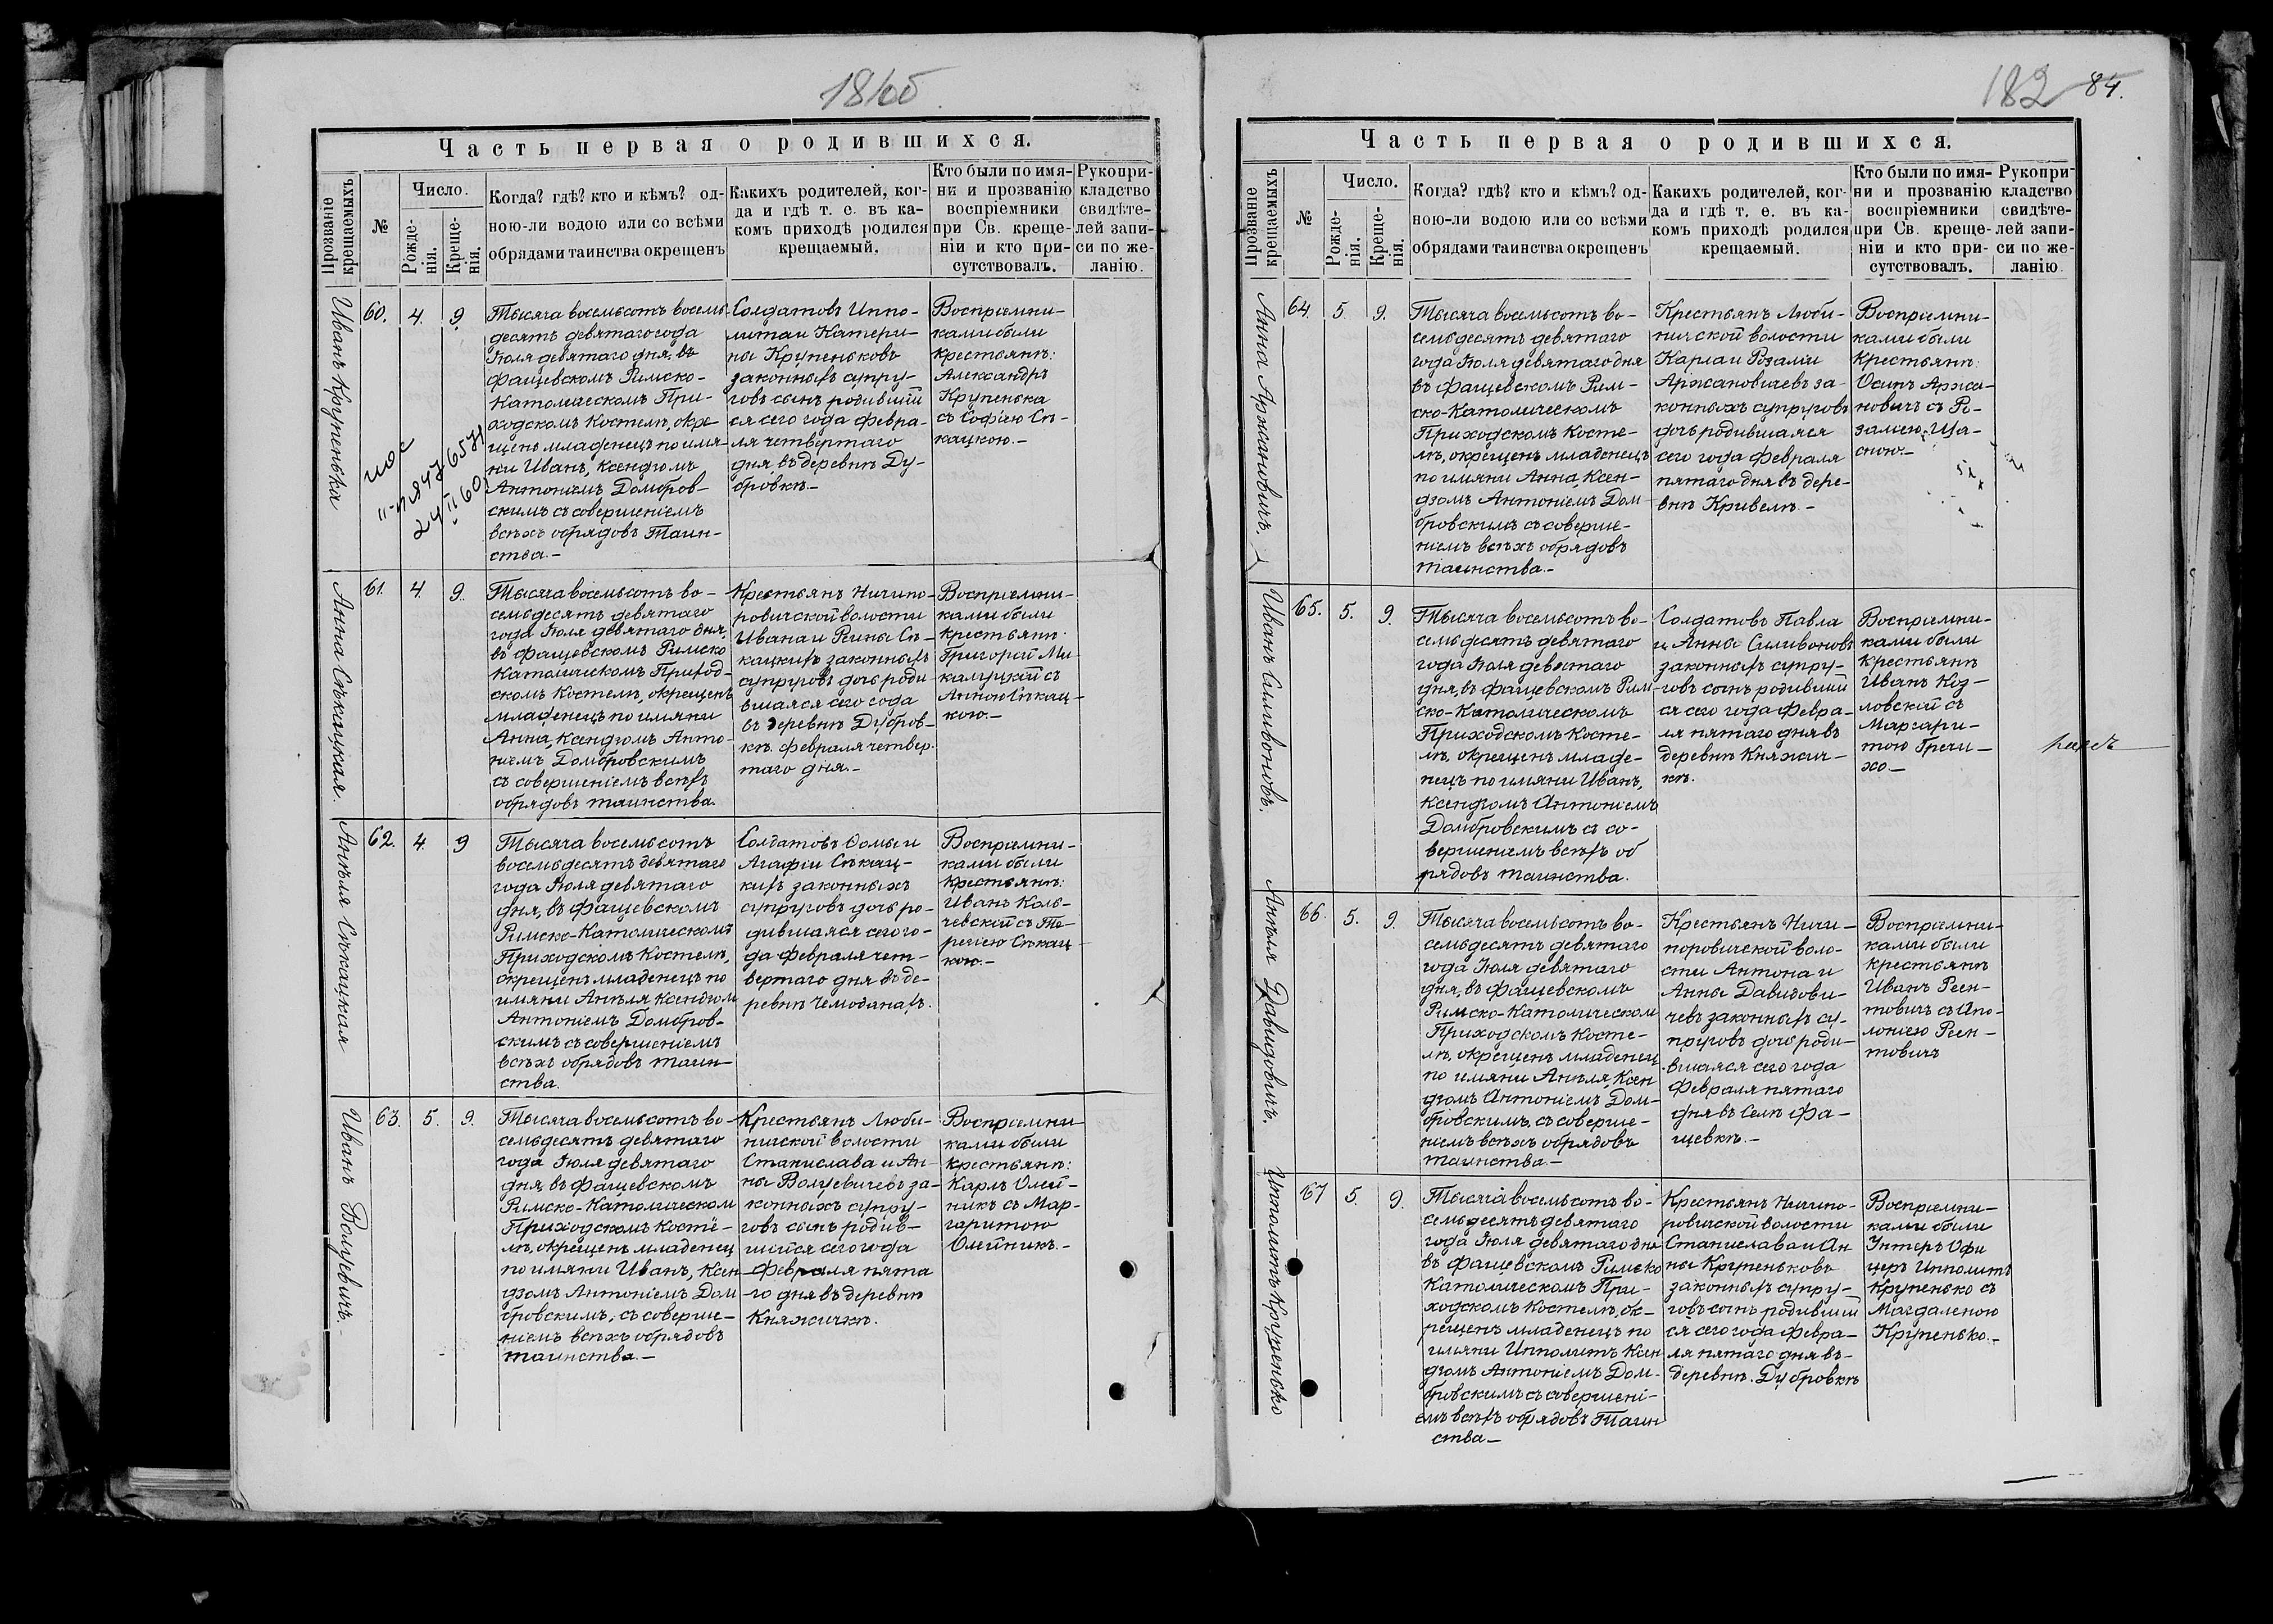 1860
Часть первая о родившихся.
Прозваніе крещаемыхъ
№
Число.
Рожде-
нія.
Креще-
нія.
Когда? гдѣ? кто и кѣмъ? од-
ною-ли водою или со всѣми
обрядами таинства окрещенъ
Какихъ родителей, ког-
да и гдѣ т. е. въ ка-
комъ приходѣ родился
крещаемый.
Кто были по имя-
ни и прозванію
воспріемники
при Св. креще-
ніи и кто при-
сутствовалъ.
Рукопри-
кладство
свидѣте-
лей запи-
си по же-
ланію.
Иванъ Крупенька
60.
4.
9
Тысяча восемьсотъ восемь
десятъ девятаго года
Іюля девятаго дня, въ
Фащевскомъ Римско-
Католическомъ При-
ходскомъ Костелѣ, окре
щенъ младенецъ по имя-
ни Иванъ, Ксендзомъ
Антоніемъ Домбров-
скимъ съ совершеніемъ
всѣхъ обрядовъ Таин-
ства.-
Солдатовъ Иппо-
лита и Катери-
ны Крупеньковъ
законныхъ супру-
говъ сынъ родившій
ся сего года Февра-
ля четвертаго
дня, въ деревнѣ Ду-
бровкѣ.-
Воспріемни-
ками были
крестьянѣ:
Александръ
Крупенька
съ Софіею Сѣ-
кацкою.-
24 II 60
Анна Сѣкацкая.
61.
4.
9.
Тысяча восемьсотъ во-
семьдесятъ девятаго
года Іюля девятаго дня,
въ Фащевскомъ Римско
Католическомъ Приход-
скомъ Костелѣ, окрещенъ
младенецъ по имяни
Анна, Ксендзомъ Анто-
ніемъ Домбровскимъ
съ совершеніемъ всѣхъ
обрядовъ таинства.
Крестьянъ Ничипо-
ровичской волости
Ивана и Регины Сѣ-
кацкихъ законныхъ
супруговъ дочь роди
вшаяся сего года
въ деревнѣ Дубров-
кѣ Февраля четвер-
таго дня.-
Воспріемни-
ками были
крестьянѣ:
Григорій Ми
калуцкій съ
Анною Сѣкац-
кою.-
Анѣля Сѣкацкая
62.
4.
9
Тысяча восемьсотъ
восемьдесятъ девятаго
года Іюля девятаго
дня, въ Фащевскомъ
Римско-Католическомъ
Приходскомъ Костелѣ,
окрещенъ младенецъ по
имяни Анѣля Ксендзом
Антоніемъ Домбров-
скимъ съ совершеніемъ
всѣхъ обрядовъ таин-
ства.
Солдатовъ Ѳомы и
Агафіи Сѣкац-
кихъ законныхъ
супруговъ дочь ро-
дившаяся сего го-
да Февраля чет-
вертаго дня въ де-
ревнѣ Чемоданахъ.
Воспріемни-
ками были
крестьянѣ:
Иванъ Коль-
чевскій съ Те-
ресією Сѣкац-
кою.-
Иванъ Волуевичъ.-
63.
5.
9.
Тысяча восемьсотъ во-
семьдесятъ девятаго
года Іюля девятаго
дня, въ Фащевскомъ
Римско-Католическом
Приходскомъ Косте-
лѣ, окрещенъ младенец
по имяни Иванъ, Ксен
дзомъ Антоніемъ Дом
бровскимъ, съ соверше-
ніемъ всѣхъ обрядовъ
таинства.-
Крестьянъ Люби-
ничской волости
Станислава и Ан-
ны Волуевичевъ за-
конныхъ супру-
говъ сынъ родив-
шійся сего года
Февраля пята
го дня въ деревнѣ
Княжичкѣ.
Воспріемни
ками были
крестьянѣ:
Карлъ Олей-
никъ съ Мар-
гаритою
Олейникъ.-
182 84.
Часть первая о родившихся.
Прозваніе крещаемыхъ
№
Число.
Рожде-
нія.
Креще-
нія.
Когда? гдѣ? кто и кѣмъ? од-
ною-ли водою или со всѣми
обрядами таинства окрещенъ
Какихъ родителей, ког-
да и гдѣ т. е. въ ка-
комъ приходѣ родился
крещаемый.
Кто были по имя-
ни и прозванію
воспріемники
при Св. креще-
ніи и кто при-
сутствовалъ.
Рукопри-
кладство
свидѣте-
лей запи-
си по же-
ланію
Анна Аржановичъ.
64.
5.
9.
Тысяча восемьсотъ во-
семьдесятъ девятаго
года Іюля девятаго дня
въ Фащевскомъ Рим-
ско-Католическомъ
Приходскомъ Косте-
лѣ, окрещенъ младенецъ
по имяни Анна, Ксен-
дзомъ Антоніемъ Дом
бровскимъ съ соверше-
ніемъ всѣхъ обрядовъ
таинства.-
Крестьянъ Люби-
ничской волости
Карла и Розаліи
Аржановичевъ за-
конныхъ супруговъ
дочь родившаяся
сего года Февраля
пятаго дня въ дере-
внѣ Кривелѣ.-
Воспріемни-
ками были
Крестьянѣ:
Осипъ Аржа-
новичъ съ Ро-
заліею
Иванъ Силивоновъ.
65.
5.
9.
Тысяча восемьсотъ во-
семьдесятъ девятаго
года Іюля девятаго
дня, въ Фащевскомъ Рим
ско-Католическомъ
Приходскомъ Косте-
лѣ, окрещенъ младе-
нецъ по имяни Иванъ,
Ксендзомъ Антоніемъ
Домбровскимъ съ со-
вершеніемъ всѣхъ об
рядовъ таинства.
Солдатовъ Павла
и Анны Силивоновъ
законныхъ супру-
говъ сынъ родившій
ся сего года Февра-
ля пятаго дня въ
деревнѣ Княжич-
кѣ.
Воспріемни-
ками были
крестьянѣ
Иванъ Коз-
ловскій съ
Маргари-
тою Гречи-
хо-
Анѣля Давидовичъ.
66.
5.
9.
Тысяча восемьсотъ во-
семьдесятъ девятаго
года Іюля девятаго
дня, въ Фащевскомъ
Римско-Католическом
Приходскомъ Косте-
лѣ, окрещенъ младенец
по имяни Анѣля, Ксен
дзомъ Антоніемъ Дом-
бровскимъ, съ соверше-
ніемъ всѣхъ обрядовъ
таинства.-
Крестьянъ Ничи-
поровичской воло-
сти Антона и
Анны Давидови-
чевъ законныхъ су-
пруговъ дочь роди-
вшаяся сего года
Февраля пятаго
дня въ Селѣ Фа-
щевкѣ.-
Воспріемни-
ками были
крестьянѣ
Иванъ Реен-
товичъ съ Апо-
лоніею Реен-
товичъ
Ипполитъ Крупенько
67
5.
9.
Тысяча восемьсотъ во-
семьдесятъ девятаго
года Іюля девятаго дня
въ Фащевскомъ Римско
Католическомъ При-
ходскомъ Костелѣ, ок-
рещенъ младенецъ по
имяни Ипполитъ Ксен
дзомъ Антоніемъ Дом-
бровскимъ съ совершені-
емъ всѣхъ обрядовъ Таин
ства-
Крестьянъ Ничипо-
ровичской волости
Станислава и Ан
ны Крупеньковъ
законныхъ супру-
говъ сынъ родившій
ся сего года Февра-
ля пятаго дня въ-
деревнѣ. Дубровкѣ
Воспріемни-
ками были
Унтеръ Офи
церъ Ипполитъ
Крупенько съ
Магдаленою
Крупенько.-